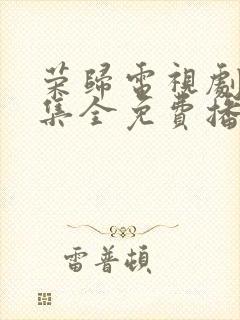 荣歸電視劇
集全免費播
雷普頓